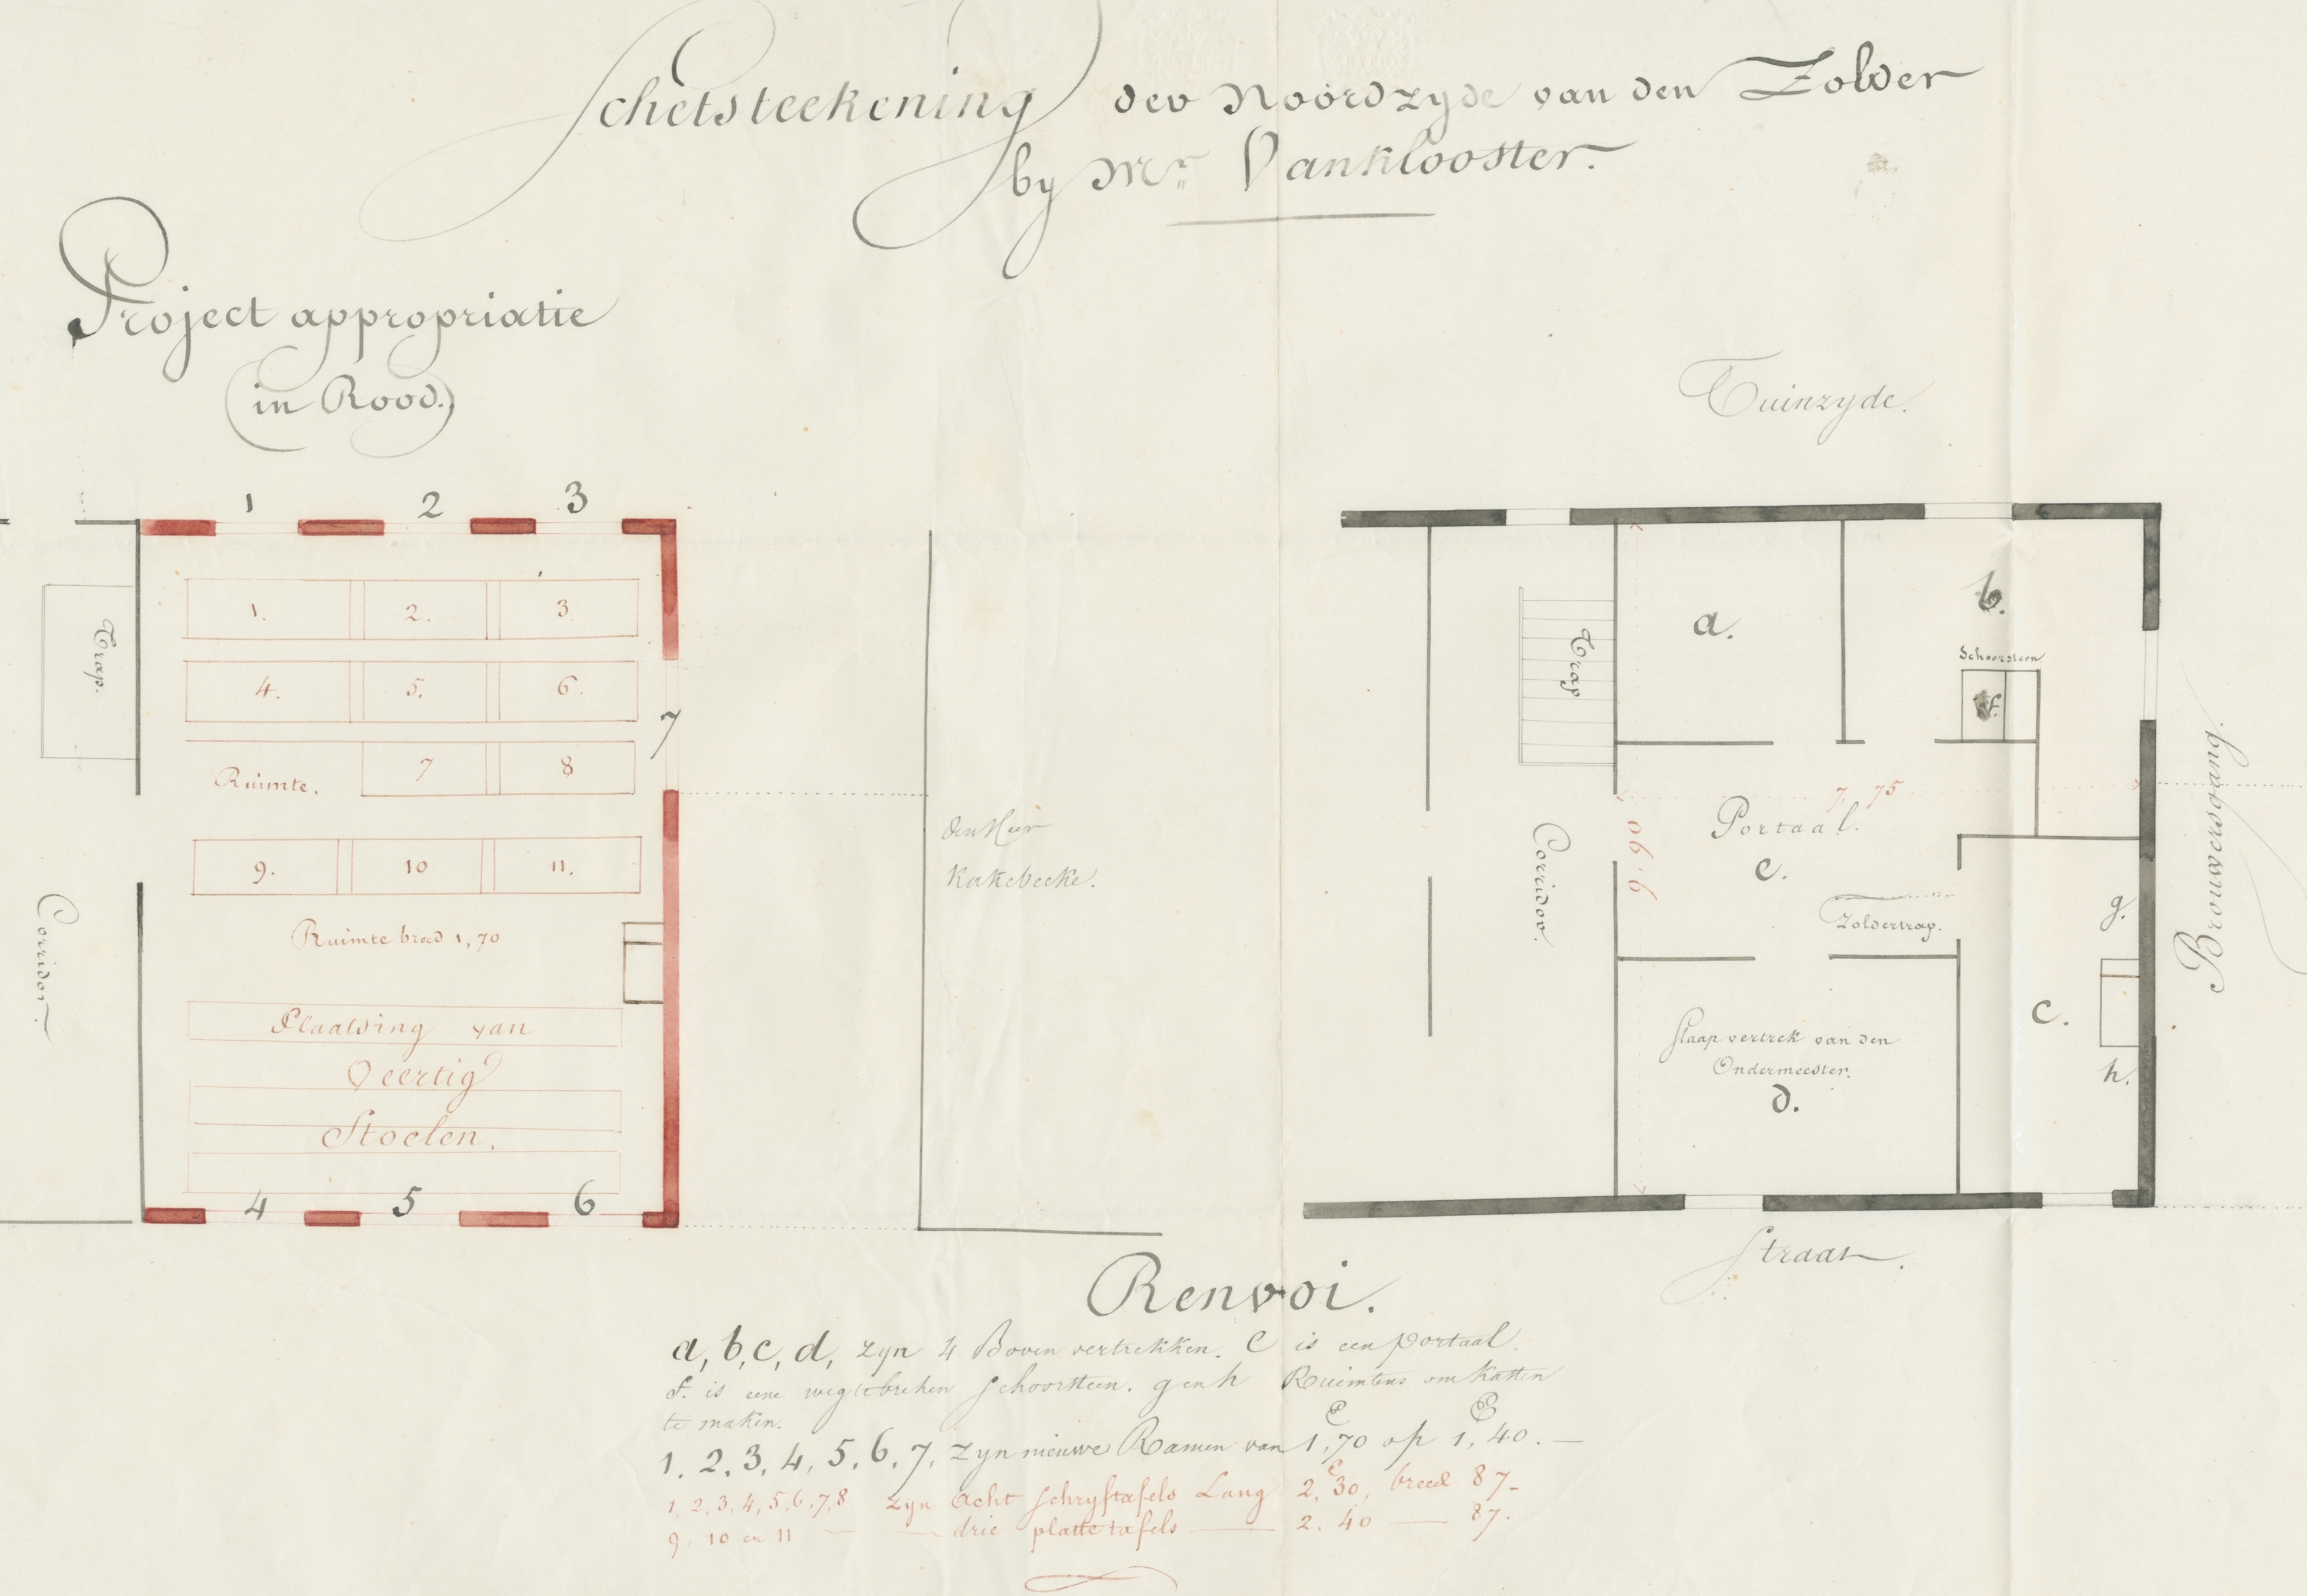 Schetsteekening der Noordzyde van den Zolder
by Mr. Vanklooster.
Project appropriatie
(in Rood.)
Tuinzyde.
1 2 3
1. 2. 3
4. 5. 6.
7
Ruimte. 7 8
9. 10 11.
Ruimte breed 1,70
Plaatsing van
Veertig
Stoelen.
4 5 6
Trap.
Corridor.
den Heer
Kakebeeke.
a.
b.
Schoorsteen
f.
Trap
7,75
9.90
Portaal.
e.
Corridor.
Zoldertrap.
g.
c.
h.
Slaapvertrek van den
Ondermeester.
d.
Brouwersgang.
Straat.
Renvoi.
a, b, c, d, zyn 4 Boven vertrekken. e is een portaal.
f. is eene wegtebreken schoorsteen. g en h Ruimtens om Kasten
te maken.
1. 2. 3. 4. 5. 6. 7. zyn nieuwe Ramen van 1,70 op 1,40. —
1, 2, 3, 4, 5, 6, 7, 8 zyn acht schryftafels Lang 2,30, breed 87-
9, 10 en 11 — — drie platte tafels — 2.40 — 87.